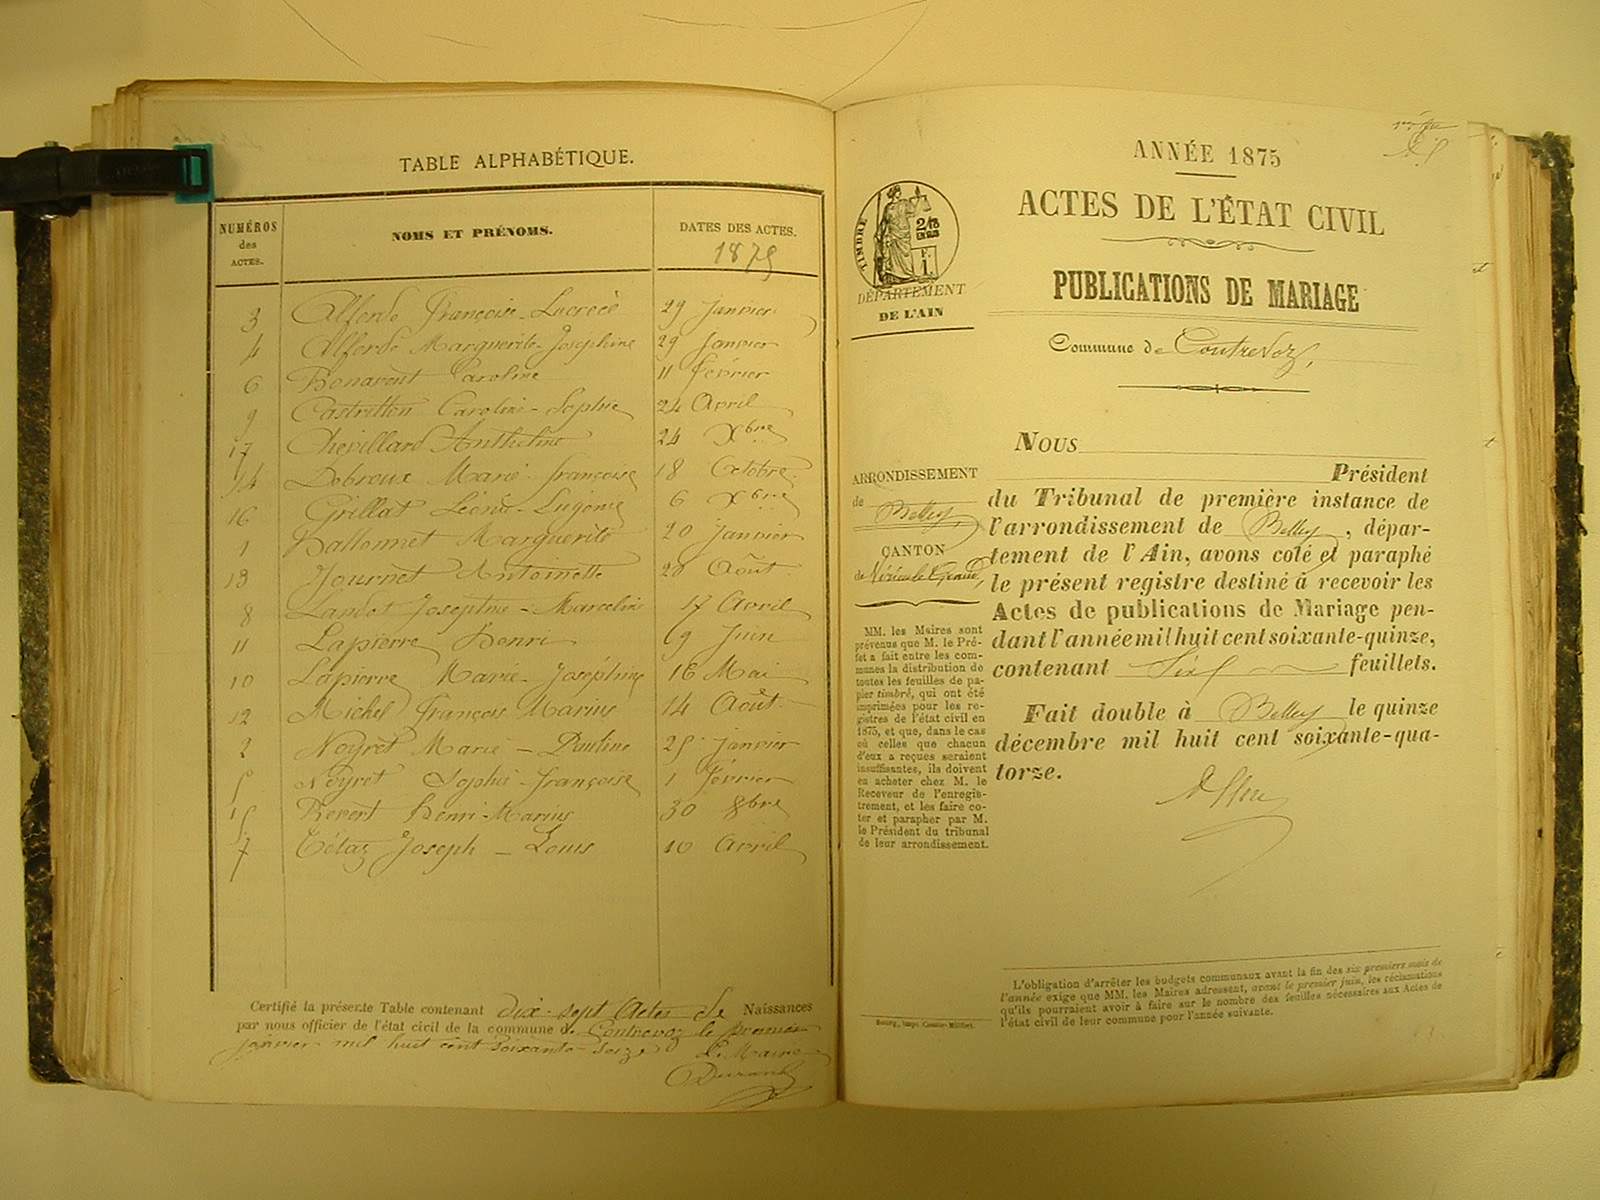 TABLE ALPHABÉTIQUE.
NUMÉROS des ACTES.
NOMS ET PRÉNOMS.
DATES DES ACTES.
1875
3 Françoise Lucrèce 29 Janvier
4 Marguerite Joséphine 29 Janvier
6 Bonavent Caroline 11 février
9 Caroline - Sophie 24 Avril
17 Chevillard Anthelme 24 Xbre
14 Debroux Marie françoise 18 Octobre
16 Grillat 6 Xbre
1 Hallonnet Marguerite 20 Janvier
13 Journet Antoinette 20 Août
8 Landot Josephte - Marceline 17 Avril
11 Lapierre Henri 9 Juin
10 Lapierre Marie - Joséphine 16 Mai
12 Michel françois Marius 14 Août
2 Neyret Marie - Pauline 25 Janvier
5 Neyret Sophie - françoise 1 février
15 Revert Henri - Marius 30 8bre
7 Tétaz Joseph - Louis 10 Avril
Certifié la présente Table contenant dix-sept Actes de Naissances
par nous officier de l'état civil de la commune de Contrevoz le premier
janvier mil huit cent soixante seize
Le Maire
Durand
ANNÉE 1875
ACTES DE L'ÉTAT CIVIL
TIMBRE
2/10 EN SUS
F. 1.
PUBLICATIONS DE MARIAGE
DÉPARTEMENT
DE L'AIN
Commune de Contrevoz,
ARRONDISSEMENT
de Belley
CANTON
de Virieu le Grand
MM. les Maires sont
prévenus que M. le Pré-
fet a fait entre les com-
munes la distribution de
toutes les feuilles de pa-
pier timbré, qui ont été
imprimées pour les re-
gistres de l'état civil en
1875, et que, dans le cas
où celles que chacun
d'eux a reçues seraient
insuffisantes, ils doivent
en acheter chez M. le
Receveur de l'enregis-
trement, et les faire co-
ter et parapher par M.
le Président du tribunal
de leur arrondissement.
NOUS
Président
du Tribunal de première instance de
l'arrondissement de Belley, dépar-
tement de l'Ain, avons coté et paraphé
le présent registre destiné à recevoir les
Actes de publications de Mariage pen-
dant l'année mil huit cent soixante-quinze,
contenant Six feuillets.
Fait double à Belley le quinze
décembre mil huit cent soixante-qua-
torze.
L'obligation d'arrêter les budgets communaux avant la fin des six premiers mois de
l'année exige que MM. les Maires adressent, avant le premier juin, les réclamations
qu'ils pourraient avoir à faire sur le nombre des feuilles nécessaires aux Actes de
l'état civil de leur commune pour l'année suivante.